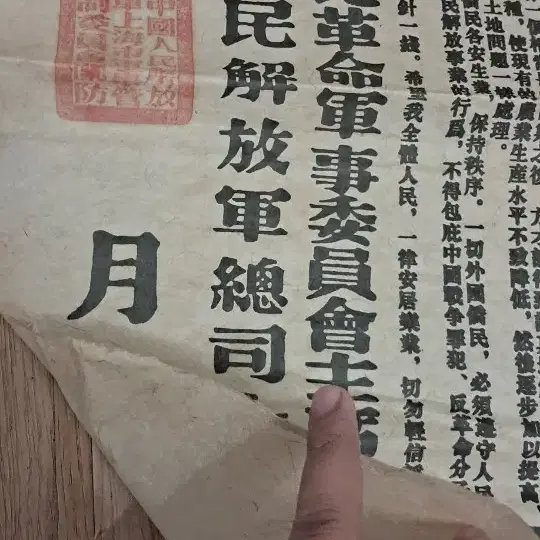 種，使現有的農業生産水平不致降低，然後逐步加以提高
土地問題一樣處理。
僑民各安生業，保持秩序。一切外國僑民，必須遵守人民
民解放事業的行爲，不得包庇中國戰争罪犯、反革命分
針一綫。希望我全體人民，一律安居樂業，切勿輕信
革命軍事委員會主
民解放軍總司
月
中國人民解放
上海市軍管